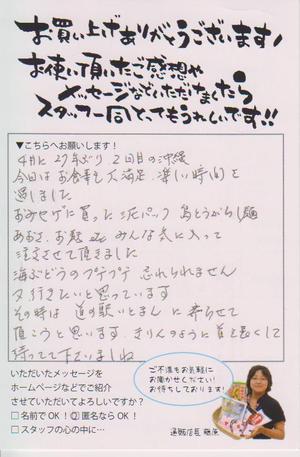 お買い上げありがとうございます!
お使い頂いたご感想や
メッセージなどいただけましたら
スタッフ一同とってもうれしいです!!
▼こちらへお願いします!
4月に27年ぶり 2回目の沖縄
今回はお食事も大満足 楽しい時間を
過しました
おみやげに買った泥パック 島とうがらし麺
あおさ、お塩 みんな気に入って
注文させて頂きました
海ぶどうのプチプチ 忘れられません
又行きたいと思っています
その時は 道の駅いとまんに 寄らせて
頂こうと思います きりんのように首を長くして
待ってて下さいましね
いただいたメッセージを
ホームページなどでご紹介
させていただいてよろしいですか?
□名前でOK! ☑匿名ならOK!
□スタッフの心の中に…
ご不満もお気軽に
お聞かせください!
お待ちしております!
通販店長